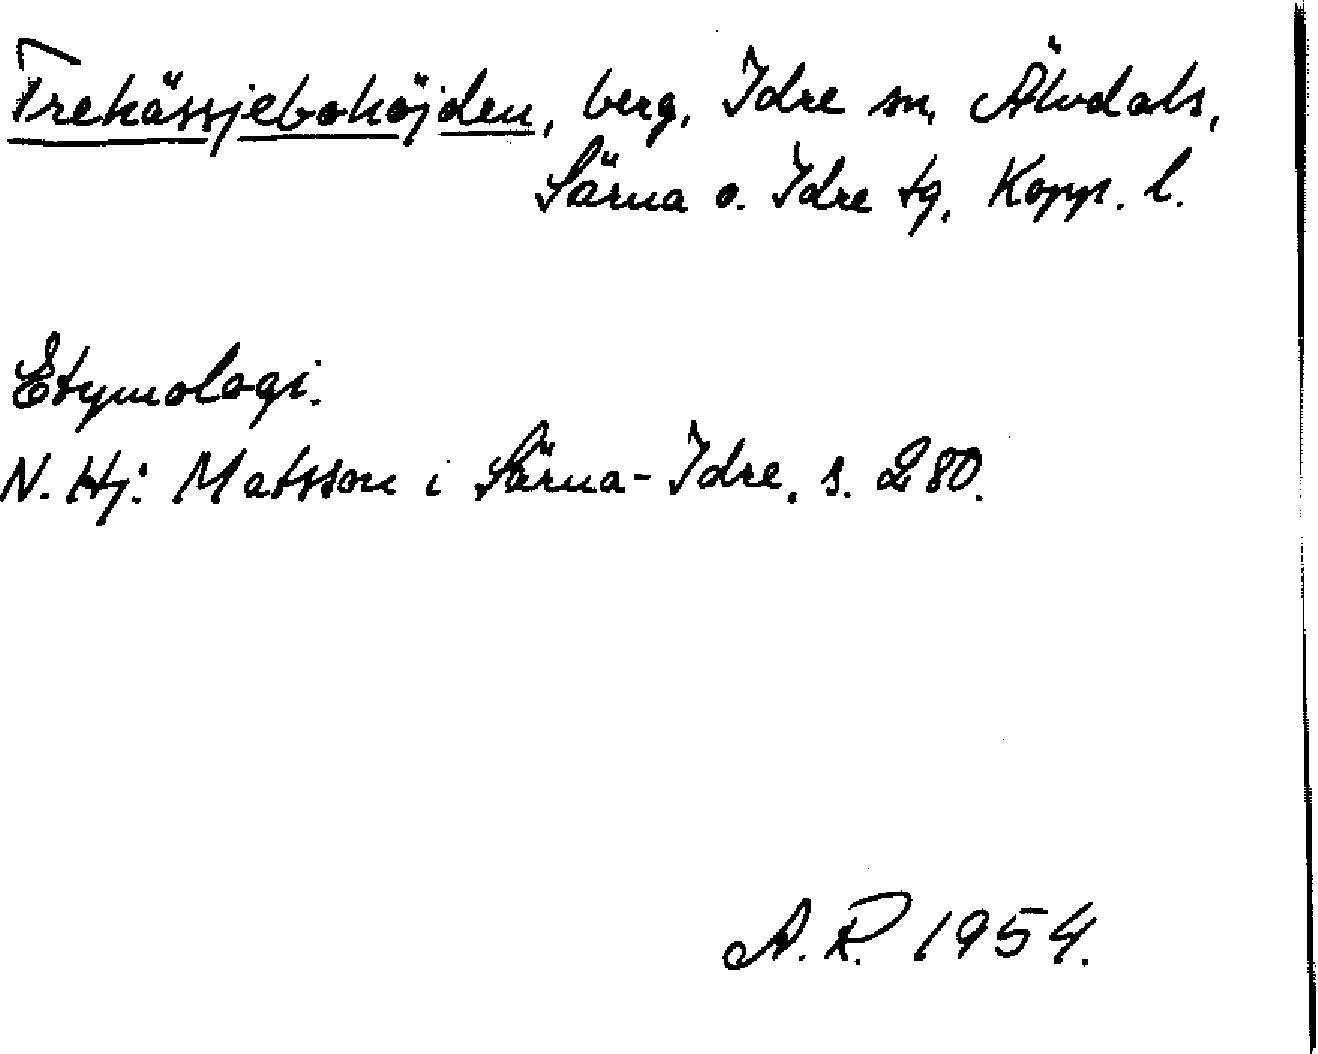 Trekässjebohöjden, berg, Idre sn, Älvdals,
Särna o. Idre tg, Kopp. l.
Etymologi.
N. Hj. Matsson i Särna-Idre, s. 280.
A. R. 1954.